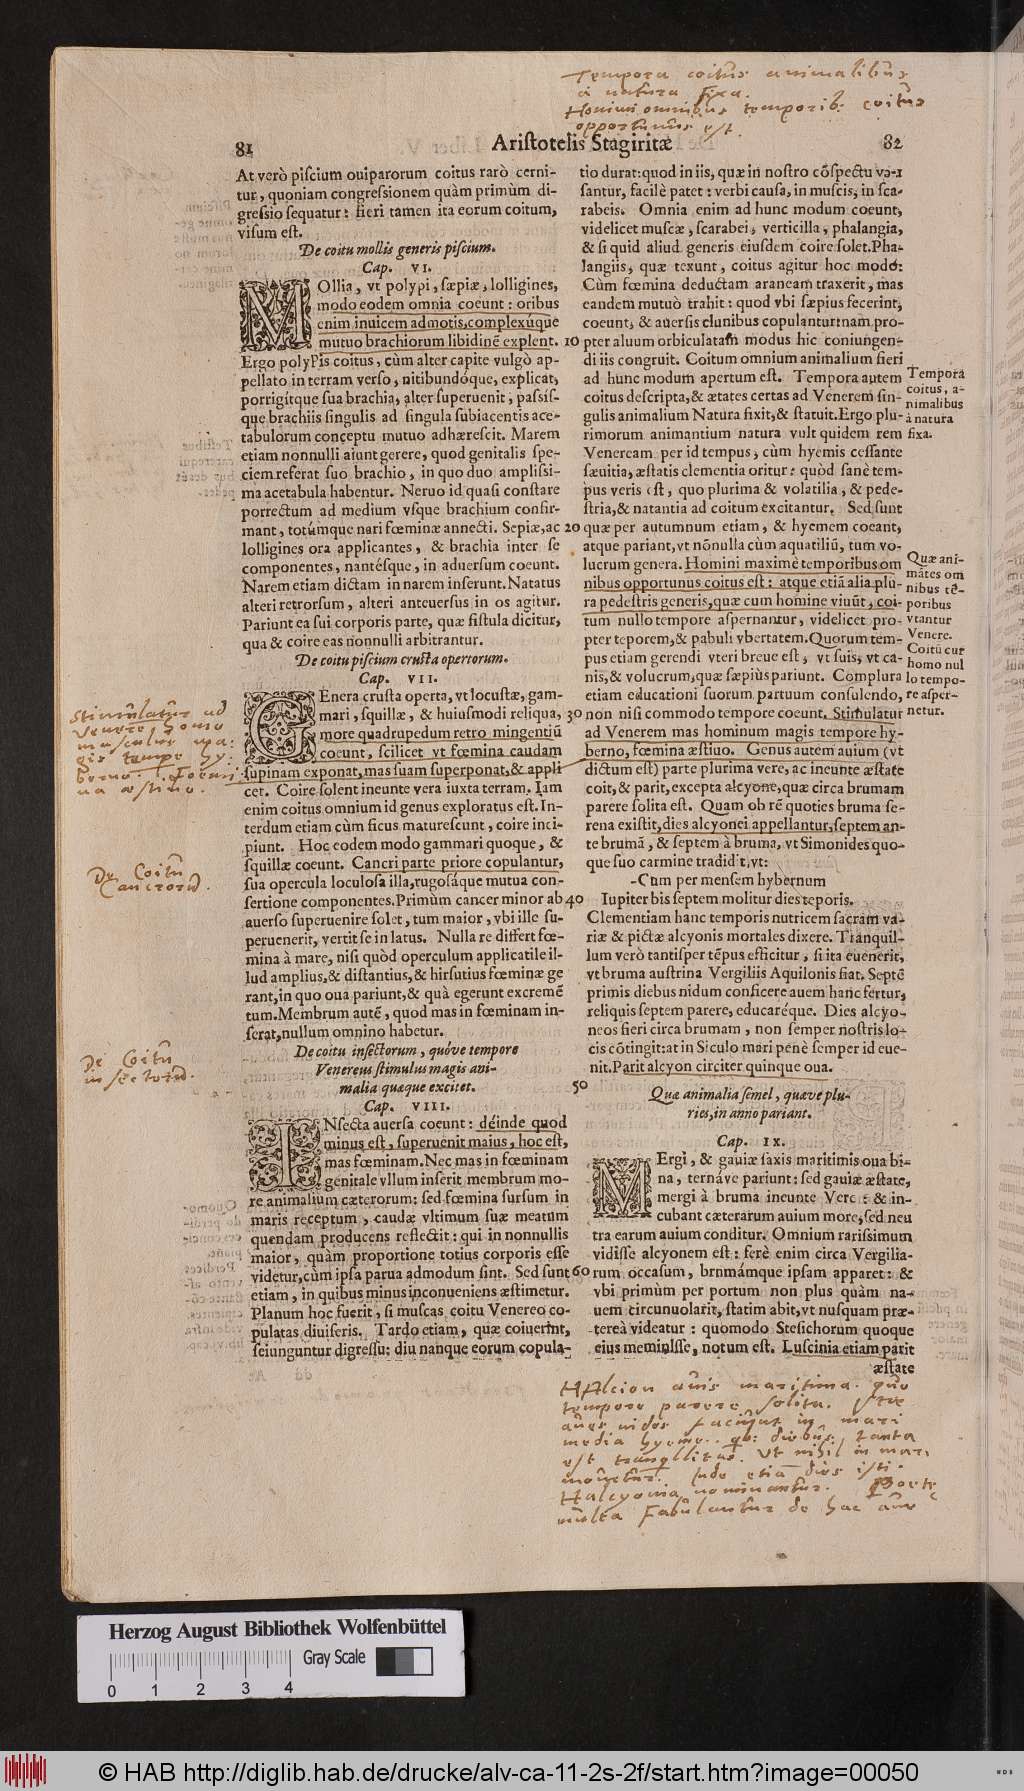 Tempora coitus animalibus
a natura fixa.
Homini omnibus temporib: coitus
opportunus est.
81
Aristotelis Stagiritæ
82
At verò piscium ouiparorum coitus rarò cerni-
tur, quoniam congressionem quàm primùm di-
gressio sequatur: fieri tamen ita eorum coitum,
visum est.
De coitu mollis generis piscium.
Cap. VI.
MOllia, vt polypi, sæpiæ, lolligines,
modo eodem omnia coeunt: oribus
enim inuicem admotis, complexúque
mutuo brachiorum libidinē explent.
Ergo polyPis coitus, cùm alter capite vulgò ap-
pellato in terram verso, nitibundóque, explicat,
porrigítque sua brachia, alter superuenit, passis-
que brachiis singulis ad singula subiacentis ace-
tabulorum conceptu mutuo adhærescit. Marem
etiam nonnulli aiunt gerere, quod genitalis spe-
ciem referat suo brachio, in quo duo amplissi-
ma acetabula habentur. Neruo id quasi constare
porrectum ad medium vsque brachium confir-
mant, totúmque nari fœminæ annecti. Sepiæ, ac
lolligines ora applicantes, & brachia inter se
componentes, nantésque, in aduersum coeunt.
Narem etiam dictam in narem inserunt. Natatus
alteri retrorsum, alteri anteuersus in os agitur.
Pariunt ea sui corporis parte, quæ fistula dicitur,
qua & coire eas nonnulli arbitrantur.
De coitu piscium crusta opertorum.
Cap. VII.
GEnera crusta operta, vt locustæ, gam-
mari, squillæ, & huiusmodi reliqua,
more quadrupedum retro mingentiū
coeunt, scilicet vt fœmina caudam
supinam exponat, mas suam superponat, & appli
cet. Coire solent ineunte vera iuxta terram. Iam
enim coitus omnium id genus exploratus est. In-
terdum etiam cùm ficus maturescunt, coire inci-
piunt. Hoc eodem modo gammari quoque, &
squillæ coeunt. Cancri parte priore copulantur,
sua opercula loculosa illa, rugosáque mutua con-
sertione componentes. Primùm cancer minor ab
auerso superuenire solet, tum maior, vbi ille su-
peruenerit, vertit se in latus. Nulla re differt fœ-
mina à mare, nisi quòd operculum applicatile il-
lud amplius, & distantius, & hirsutius fœminæ ge
rant, in quo oua pariunt, & quà egerunt excremē
tum. Membrum autē, quod mas in fœminam in-
serat, nullum omnino habetur.
De coitu insectorum, quóve tempore
Venereus stimulus magis ani-
malia quæque excitet.
Cap. VIII.
INsecta auersa coeunt: déinde quod
minus est, superuenit maius, hoc est,
mas fœminam. Nec mas in fœminam
genitale vllum inserit membrum mo-
re animalium cæterorum: sed fœmina sursum in
maris receptum, caudæ vltimum suæ meatum
quendam producens reflectit: qui in nonnullis
maior, quàm proportione totius corporis esse
videtur, cùm ipsa parua admodum sint. Sed sunt
etiam, in quibus minus inconueniens æstimetur.
Planum hoc fuerit, si muscas coitu Venereo co-
pulatas diuiseris. Tardo etiam, quæ coiuerint,
seiunguntur digressu: diu nanque eorum copula-
Stimulatur ad
Venere homo
masculus ma:
gis tempe hy:
berno. Foemi
na æstiuo.
De Coitu
Cancrorū.
De Coitu
insectorū.
10
20
30
40
50
60
tio durat: quod in iis, quæ in nostro cōspectu ve-
santur, facilè patet: verbi causa, in muscis, in sca-
rabeis. Omnia enim ad hunc modum coeunt,
videlicet muscæ, scarabei, verticilla, phalangia,
& si quid aliud generis eiusdem coire solet. Pha-
langiis, quæ texunt, coitus agitur hoc modo:
Cùm fœmina deductam araneam traxerit, mas
eandem mutuò trahit: quod vbi sæpius fecerint,
coeunt, & auersis clunibus copulantur: nam pro-
pter aluum orbiculatam modus hic coniungen-
di iis congruit. Coitum omnium animalium fieri
ad hunc modum apertum est. Tempora autem
coitus descripta, & ætates certas ad Venerem sin-
gulis animalium Natura fixit, & statuit. Ergo plu-
rimorum animantium natura vult quidem rem
Veneream per id tempus, cùm hyemis cessante
sæuitia, æstatis clementia oritur: quòd sanè tem-
pus veris est, quo plurima & volatilia, & pede-
stria, & natantia ad coitum excitantur. Sed sunt
quæ per autumnum etiam, & hyemem coeant,
atque pariant, vt nōnulla cùm aquatiliū, tum vo-
lucrum genera. Homini maximè temporibus om
nibus opportunus coitus est: atque etiā alia plu-
ra pedestris generis, quæ cum homine viuūt, coi-
tum nullo tempore aspernantur, videlicet pro-
pter teporem, & pabuli vbertatem. Quorum tem-
pus etiam gerendi vteri breue est, vt suis, vt ca-
nis, & volucrum, quæ sæpiùs pariunt. Complura
etiam educationi suorum partuum consulendo,
non nisi commodo tempore coeunt. Stimulatur
ad Venerem mas hominum magis tempore hy-
berno, fœmina æstiuo. Genus autem auium (vt
dictum est) parte plurima vere, ac ineunte æstate
coit, & parit, excepta alcyone, quæ circa brumam
parere solita est. Quam ob rē quoties bruma se-
rena existit, dies alcyonei appellantur, septem an-
te brumā, & septem à bruma, vt Simonides quo-
que suo carmine tradidit, vt:
-Cum per mensem hybernum
Iupiter bis septem molitur dies teporis.
Clementiam hanc temporis nutricem sacram va-
riæ & pictæ alcyonis mortales dixere. Tranquil-
lum verò tantisper tēpus efficitur, si ita euenerit,
vt bruma austrina Vergiliis Aquilonis fiat. Septē
primis diebus nidum conficere auem hanc fertur,
reliquis septem parere, educaréque. Dies alcyo-
neos fieri circa brumam, non semper nostris lo-
cis cōtingit: at in Siculo mari penè semper id eue-
nit. Parit alcyon circiter quinque oua.
Quæ animalia semel, quæve plu-
ries, in anno pariant.
Cap. IX.
MErgi, & gauiæ saxis maritimis oua bi-
na, ternáve pariunt: sed gauiæ æstate,
mergi à bruma ineunte Vere: & in-
cubant cæterarum auium more, sed neu
tra earum auium conditur. Omnium rarissimum
vidisse alcyonem est: ferè enim circa Vergilia-
rum occasum, brumámque ipsam apparet: &
vbi primùm per portum non plus quàm na-
uem circunuolarit, statim abit, vt nusquam præ-
tereà videatur: quomodo Stesichorum quoque
eius meminisse, notum est. Luscinia etiam parit
æstate
Tempora
coitus, a-
nimalibus
à natura
fixa.
Quæ ani-
mātes om
nibus tē-
poribus
vtantur
Venere.
Coitū cur
homo nul
lo tempo-
re asper-
netur.
HAlcion auis maritima. quo
tempore parere solita. Istæ
aues nidos faciunt in mari
media hyeme. qb: diebus tanta
est tranqllitas. Vt nihil in mari
moueatur. Inde etiā dies isti
Halcyonia nominantur. Poetę
multa fabulantur de hac aue
Herzog August Bibliothek Wolfenbüttel
Gray Scale
0 1 2 3 4
© HAB http://diglib.hab.de/drucke/alv-ca-11-2s-2f/start.htm?image=00050